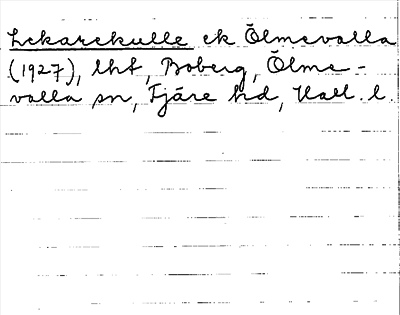 Lekarekulle ek Ölmevalla
(1927), lht, Boberg, Ölme-
valla sn, Fjäre hd, Hall. l.